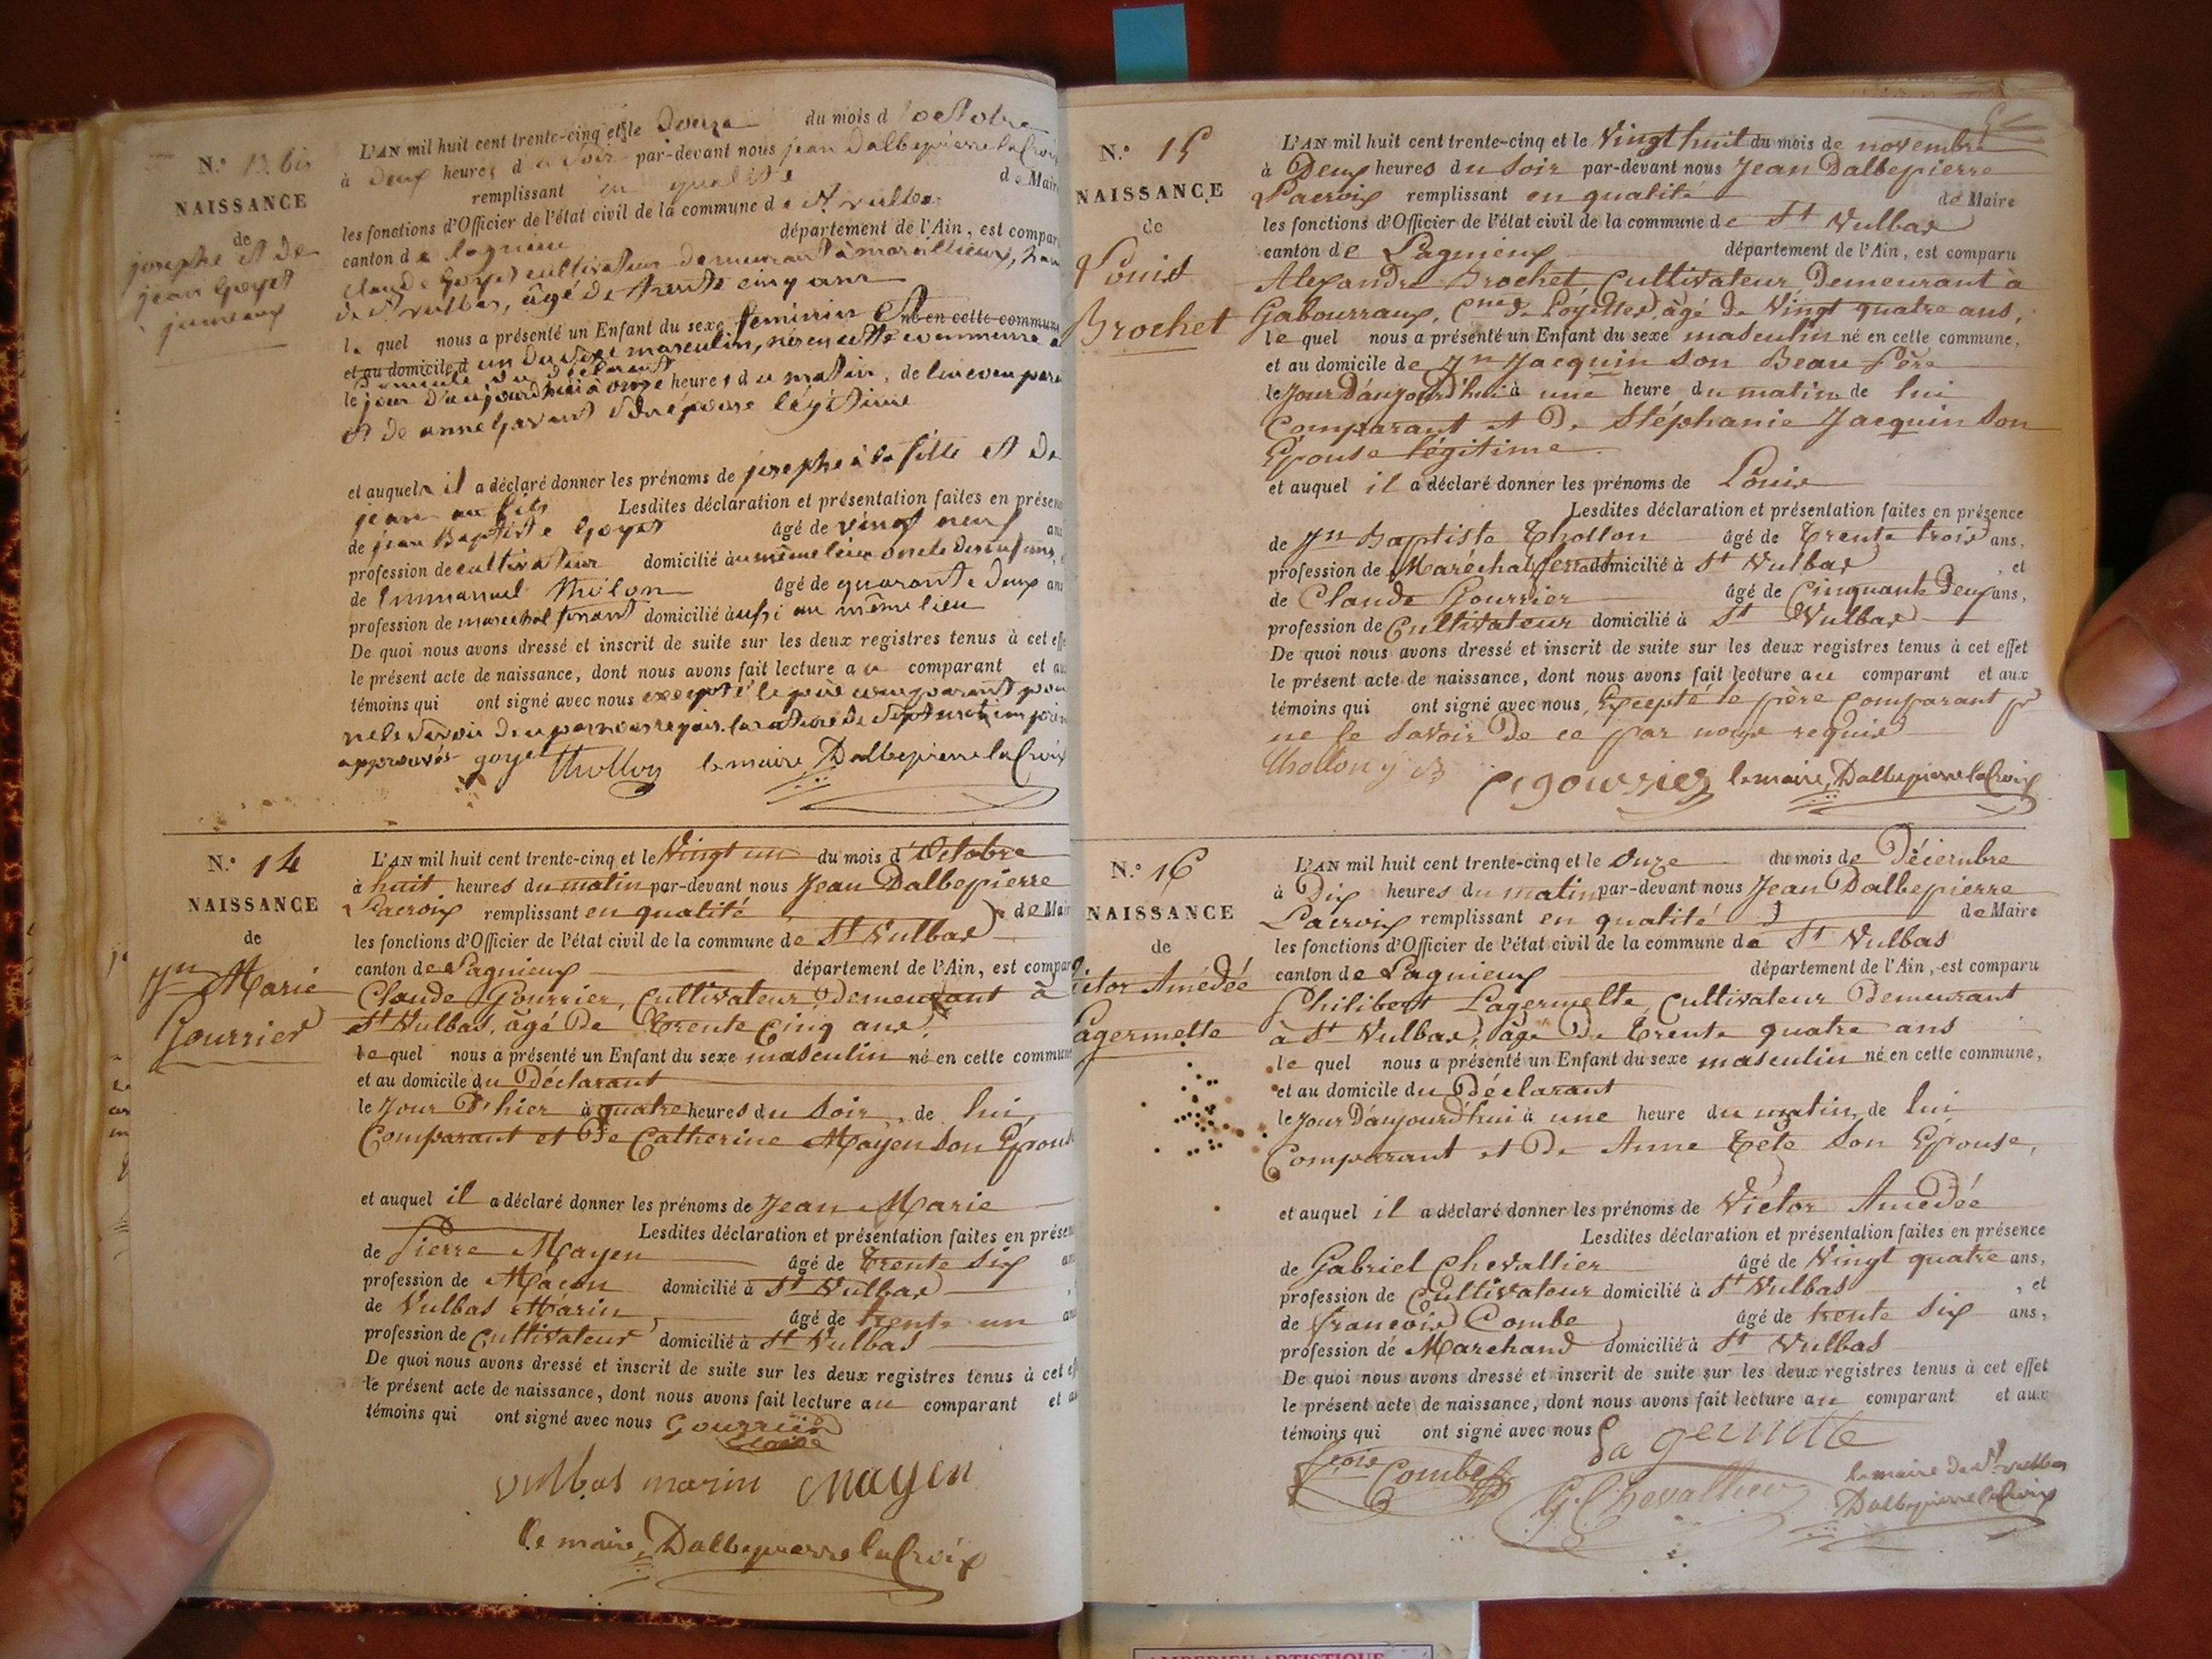 N.° 13 bis
NAISSANCE
de
josephe et de
jean Goyet
jumeaux
L'AN mil huit cent trente-cinq et le Douze du mois d'octobre
à deux heures du soir par-devant nous jean Dalbepierre la Croix
remplissant en qualité de Maire
les fonctions d'Officier de l'état civil de la commune de St vulbas
canton de lagnieu département de l'Ain, est comparu
claude Goyet cultivateur demeurant à marcillieux,
de St vulbas, âgé de trente cinq ans
le quel nous a présenté un Enfant du sexe feminin Et né en cette commune
et au domicile d un du sexe masculin, nés en cette commune
domicile du déclarant
le jour d'aujourd'hui à onze heures du matin, de lui comparant
et de anne Gavent son épouse légitime
et auquels il a déclaré donner les prénoms de josephe à la fille et de
jean au fils Lesdites déclaration et présentation faites en présence
de jean Baptiste Goyet âgé de vingt neuf ans
profession de cultivateur domicilié au même lieu oncle des enfans,
de Emmanuel tholon âgé de quarante deux ans
profession de marechal ferrant domicilié aussi au même lieu
De quoi nous avons dressé et inscrit de suite sur les deux registres tenus à cet effet
le présent acte de naissance, dont nous avons fait lecture au comparant et aux
témoins qui ont signé avec nous excepté le père comparant pour
ne le savoir de ce par nous requis. la rature de sept mots
approuvés goyet Thollon le maire, Dalbepierre la Croix
N.° 14
NAISSANCE
de
Jn Marie
Gourrier
L'AN mil huit cent trente-cinq et le Vingt un du mois d'Octobre
à huit heures du matin par-devant nous Jean Dalbepierre
Lacroix remplissant en qualité de Maire
les fonctions d'Officier de l'état civil de la commune de St Vulbas
canton de Lagnieux département de l'Ain, est comparu
Claude Gourrier, Cultivateur demeurant à
St Vulbas, âgé De Trente Cinq ans,
le quel nous a présenté un Enfant du sexe masculin né en cette commune
et au domicile du Déclarant
le Jour D'hier à quatre heures du Soir, de lui,
Comparant et De Catherine Mayen Son Epouse
et auquel il a déclaré donner les prénoms de Jean Marie
Lesdites déclaration et présentation faites en présence
de Pierre Mayen âgé de Trente Six ans
profession de Maçon domicilié à St Vulbas
de Vulbas Marin, âgé de trente un ans
profession de Cultivateur domicilié à St Vulbas
De quoi nous avons dressé et inscrit de suite sur les deux registres tenus à cet effet
le présent acte de naissance, dont nous avons fait lecture au comparant et aux
témoins qui ont signé avec nous Gourrier
vulbas marin MAYEN
le maire, Dalbepierre la Croix
N.° 15
NAISSANCE
de
Louis
Brochet
L'AN mil huit cent trente-cinq et le Vingt huit du mois de novembre
à Deux heures du Soir par-devant nous Jean Dalbepierre
Lacroix remplissant en qualité de Maire
les fonctions d'Officier de l'état civil de la commune de St Vulbas
canton de Lagnieux département de l'Ain, est comparu
Alexandre Brochet, Cultivateur Demeurant à
Gabourraux, Cne de Loyettes, âgé de Vingt quatre ans,
le quel nous a présenté un Enfant du sexe masculin né en cette commune,
et au domicile de Jn Jacquin Son Beau Père
le Jour D'aujourd'hui à une heure du matin de lui
Comparant et De Stéphanie Jacquin Son
Epouse légitime.
et auquel il a déclaré donner les prénoms de Louis
Lesdites déclaration et présentation faites en présence
de Jn Baptiste Thollon âgé de Trente trois ans,
profession de Maréchal ferrant domicilié à St Vulbas, et
de Claude Gourrier âgé de Cinquante Deux ans,
profession de Cultivateur domicilié à St Vulbas
De quoi nous avons dressé et inscrit de suite sur les deux registres tenus à cet effet
le présent acte de naissance, dont nous avons fait lecture au comparant et aux
témoins qui ont signé avec nous, Excepté le père Comparant pr
ne le Savoir De ce par nous requis
Thollon j B gourrier le maire, Dalbepierre la Croix
N.° 16
NAISSANCE
de
Victor Amédée
Lagermette
L'AN mil huit cent trente-cinq et le Onze du mois de Décembre
à Dix heures du matin par-devant nous Jean Dalbepierre
Lacroix remplissant en qualité de Maire
les fonctions d'Officier de l'état civil de la commune de St Vulbas
canton de Lagnieux département de l'Ain, est comparu
Philibert Lagermette, Cultivateur Demeurant
à St Vulbas, âgé De Trente quatre ans
le quel nous a présenté un Enfant du sexe masculin né en cette commune,
et au domicile du Déclarant
le Jour D'aujourd'hui à une heure du matin, de lui
Comparant et De Anne Tête Son Epouse,
et auquel il a déclaré donner les prénoms de Victor Amédée
Lesdites déclaration et présentation faites en présence
de Gabriel Chevallier âgé de Vingt quatre ans,
profession de Cultivateur domicilié à St Vulbas, et
de francois Combe, âgé de trente Six ans,
profession de Marchand domicilié à St Vulbas
De quoi nous avons dressé et inscrit de suite sur les deux registres tenus à cet effet
le présent acte de naissance, dont nous avons fait lecture au comparant et aux
témoins qui ont signé avec nous La germette
Combe G. Chevallier le maire de St vulbas
Dalbepierre la Croix
AMBERIEU ARTISTIQUE